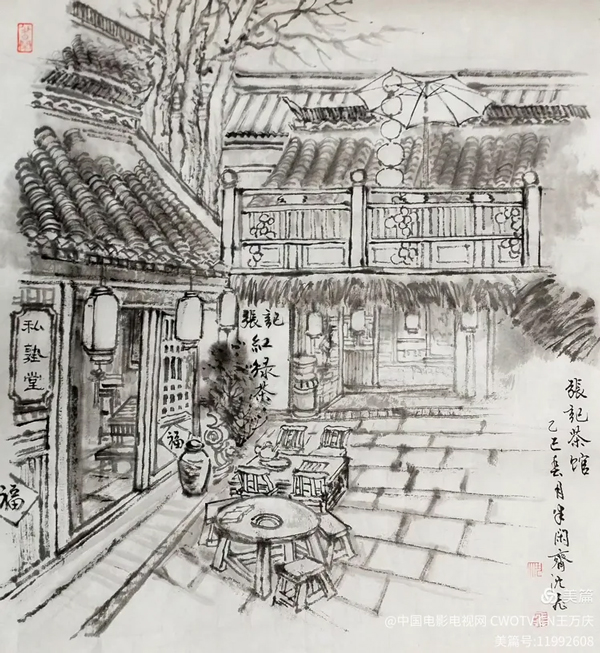 私塾堂
福
福
張記
紅綠茶
張記茶馆
乙巳春月半闲齋沈龙
美篇
@中国电影电视网 CWOTV
王万庆
美篇号:11992608